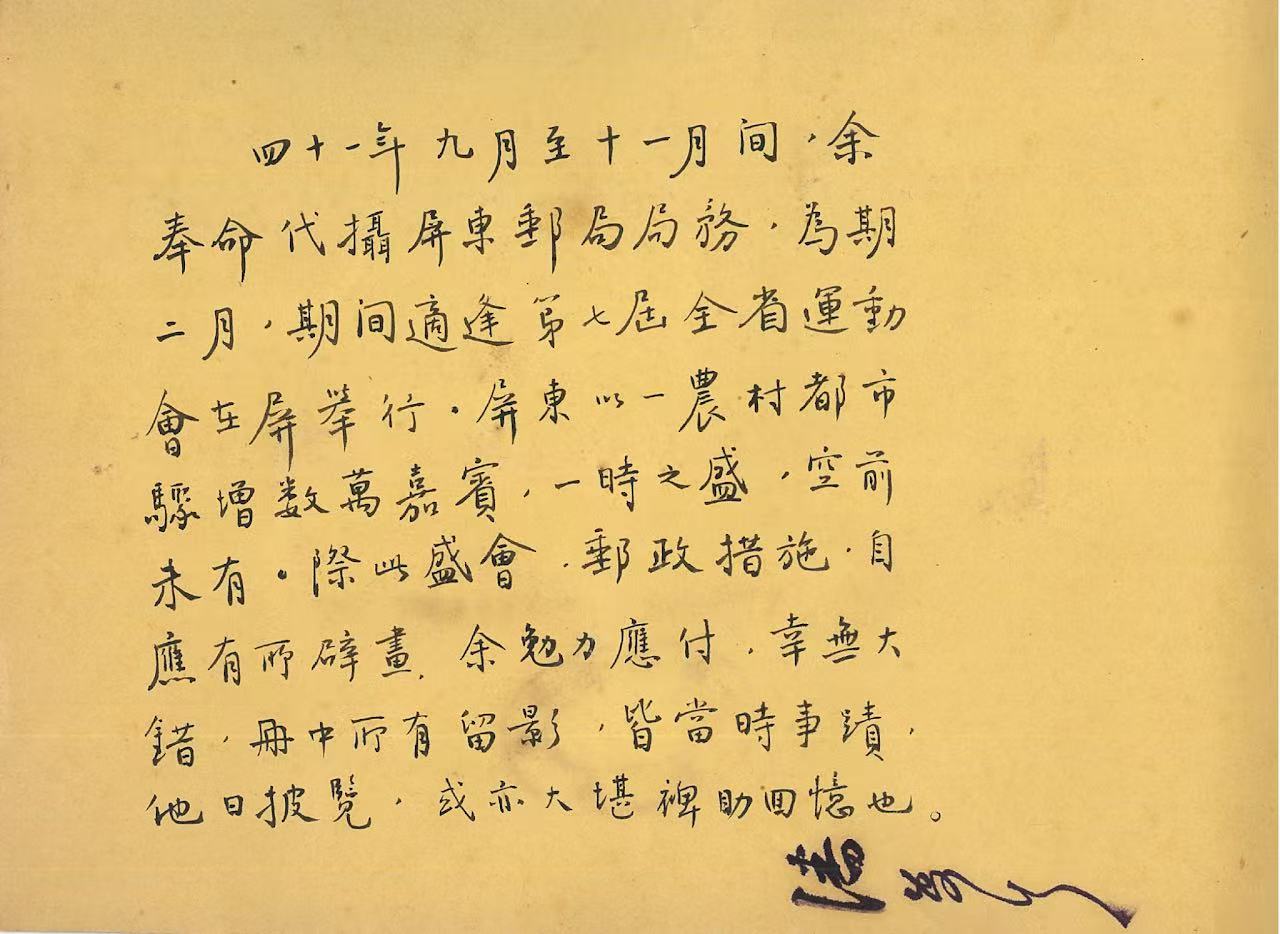 四十一年九月至十一月间，余
奉命代攝屏東郵局局務，為期
二月，期间適逢第七届全省運動
會在屏举行。屏東以一農村都市
驟增数萬嘉賓，一時之盛，空前
未有。際此盛會，郵政措施，自
應有所擘畫，余勉力應付，幸無大
錯，冊中所有留影，皆當時事蹟，
他日披覽，或亦大堪裨助回憶也。